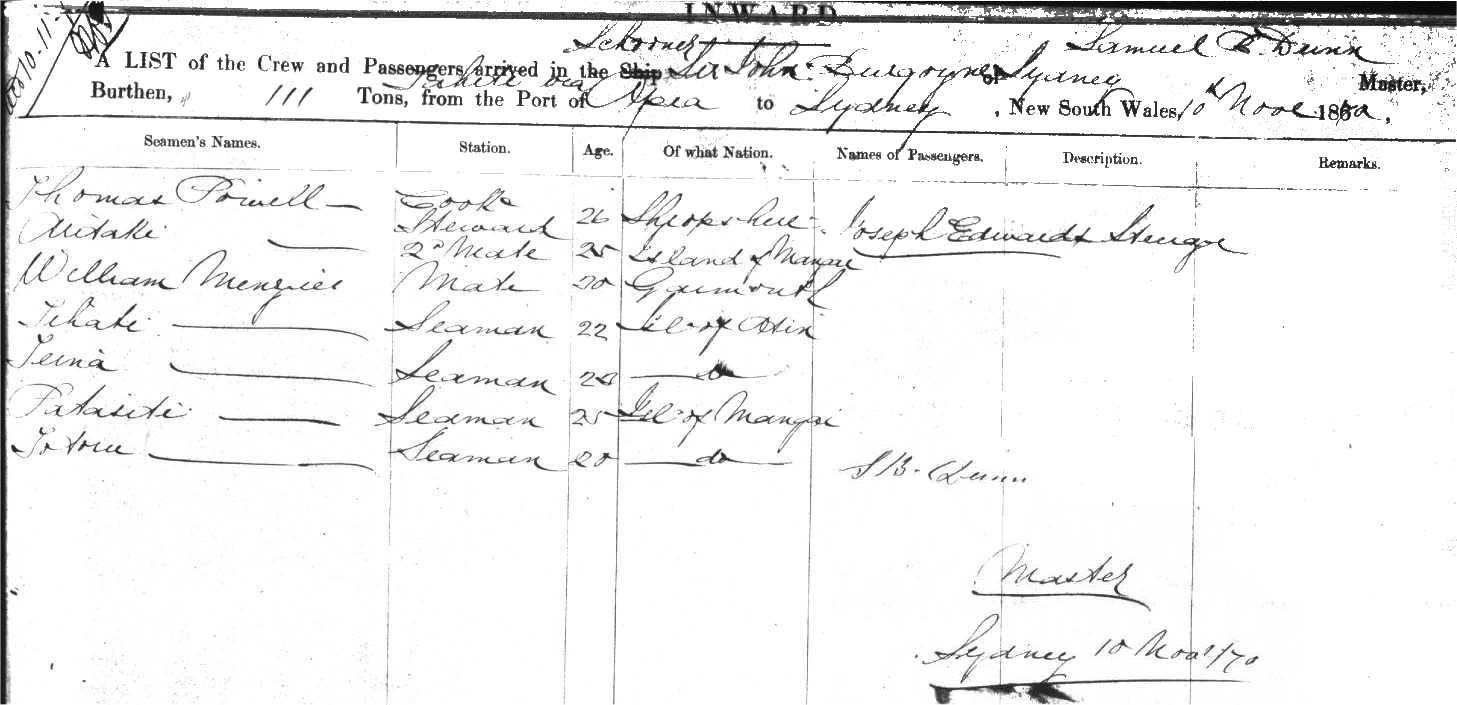 INWARD
Schooner Samuel B Dunn
A LIST of the Crew and Passengers arrived in the Ship Sir John Burgoyne of Sydney Master,
Tahiti via
Burthen, 111 Tons, from the Port of Apia to Sydney, New South Wales, 10th Novr 1870,
Seamen's Names. Station. Age. Of what Nation. Names of Passengers. Description. Remarks.
Thomas Powell Cook &
Steward 26 Shropshire Joseph Edwards
Aitaki 2d Mate 25 Island of Mangai
William Menzies Mate 20
Seaman 22 Isl of
Seaman do
Seaman 25 Isl of Mangai
Seaman 20 do
S B. Dunn
Master
Sydney 10 Novr/70